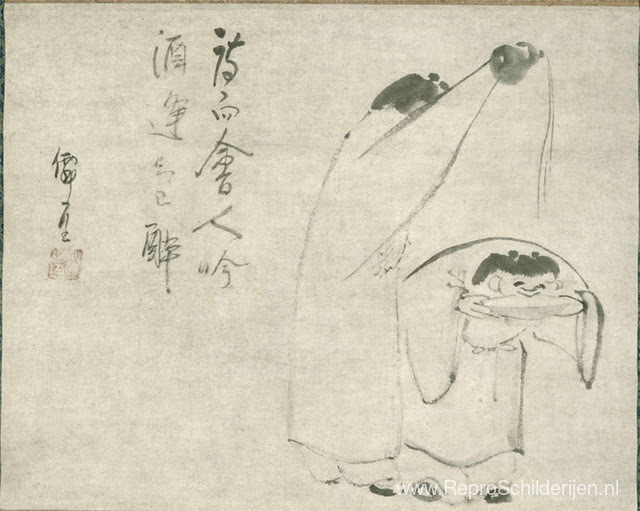 詩向會人吟
酒逢知己酔
僊厓
www.ReproSchilderijen.nl